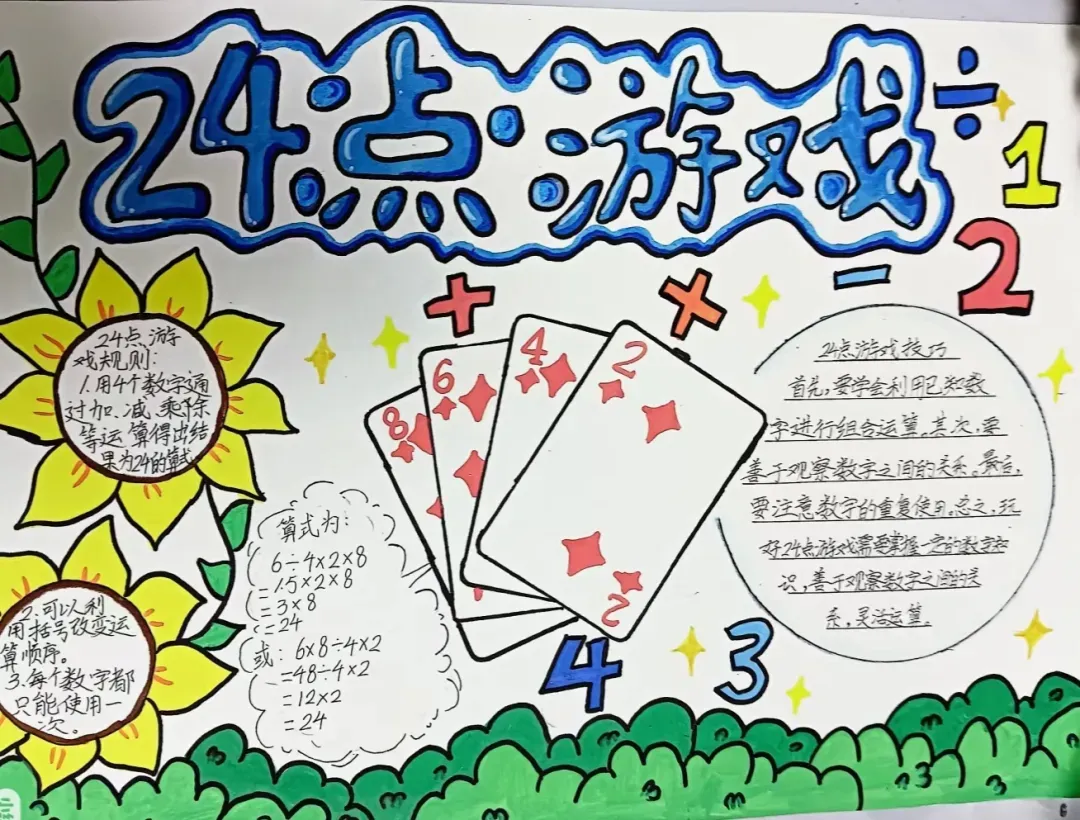 24点游戏
÷
1
2
+
×
-
24点游
戏规则:
1.用4个数字通
过加、减、乘、除
等运算得出结
果为24的算式
2.可以利
用括号改变运
算顺序。
3.每个数字都
只能使用一
次。
8
6
4
2
2
算式为:
6÷4×2×8
=1.5×2×8
=3×8
=24
或: 6×8÷4×2
=48÷4×2
=12×2
=24
4
3
24点游戏技巧
首先,要学会利用已知数
字进行组合运算。其次,要
善于观察数字之间的关系。最后,
要注意数字的重复使用。总之,玩
好24点游戏需要掌握一定的数字知
识,善于观察数字之间的关
系,灵活运算。